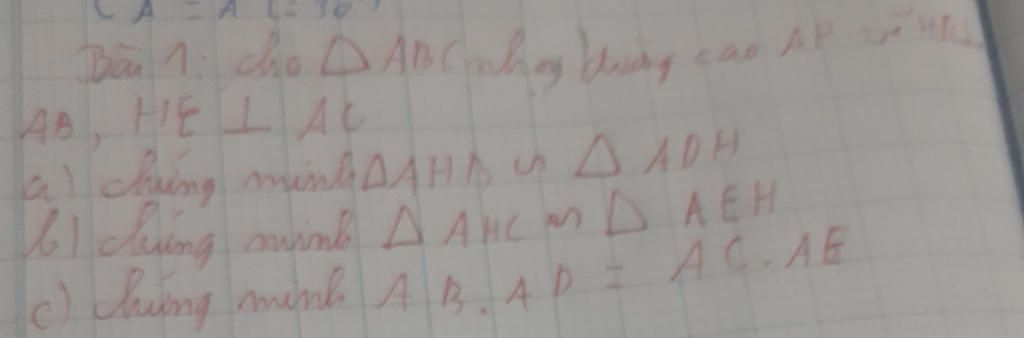 Bài 1: cho Δ ABC nhọn đường cao AH
AB, HE ⊥ AC
a) chứng minh Δ AHB ∽ Δ ADH
b) chứng minh Δ AHC ∽ Δ AEH
c) chứng minh AB.AD = AC.AE